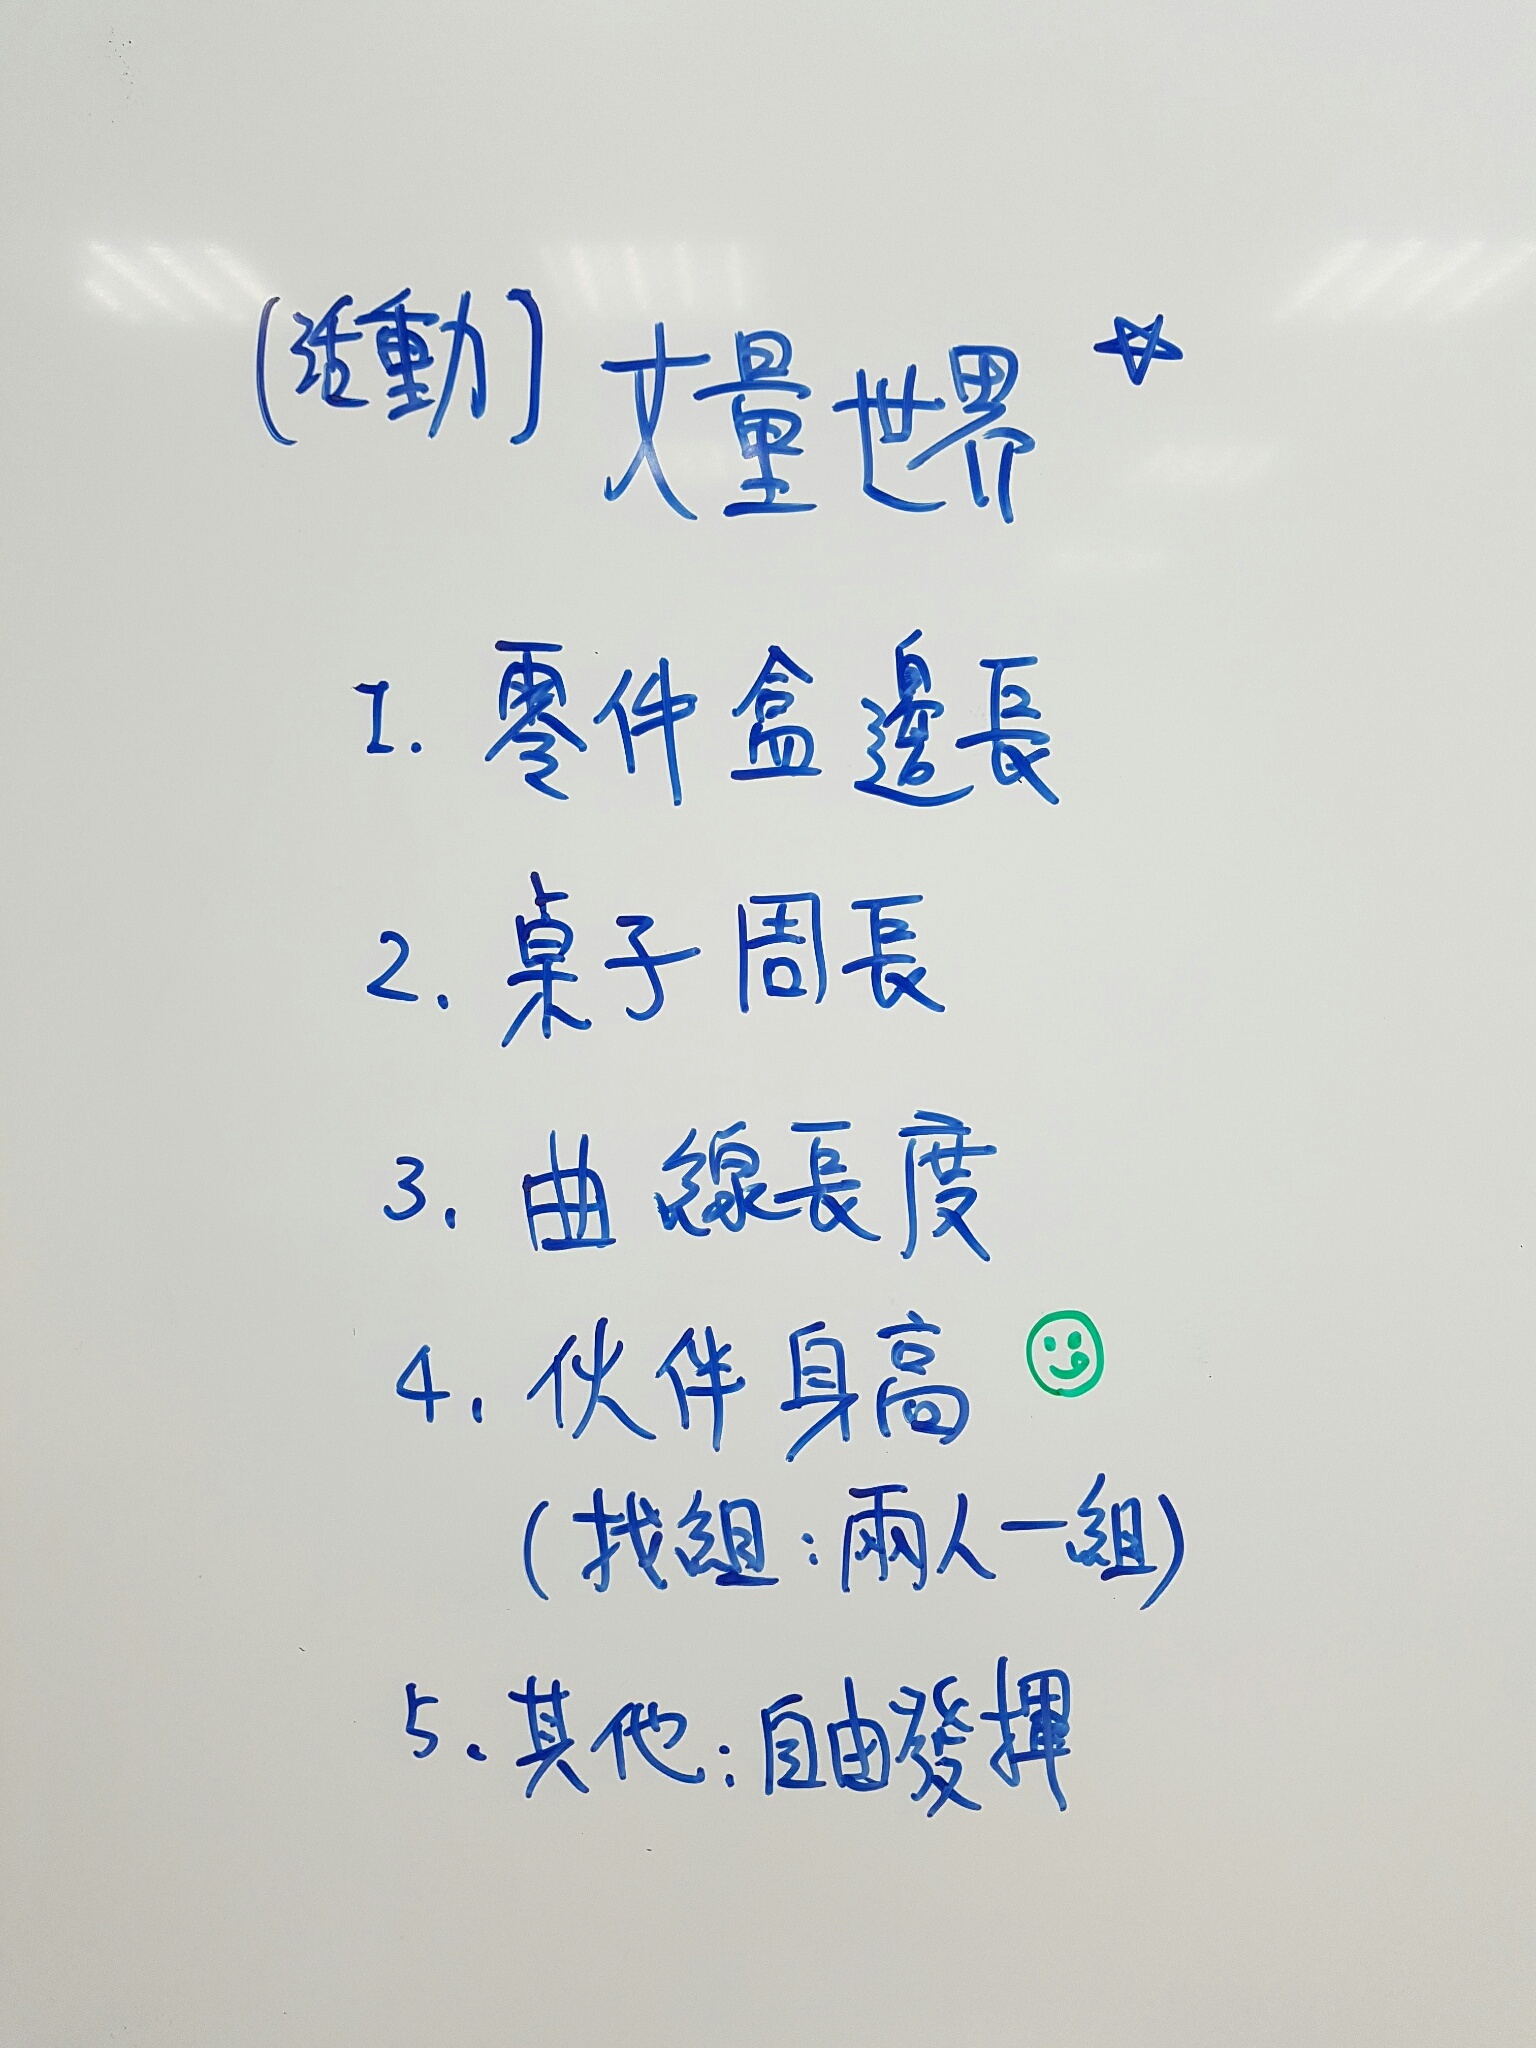 [活動] 丈量世界 ☆
1. 零件盒邊長
2. 桌子周長
3. 曲線長度
4. 伙伴身高
(找組:兩人一組)
5. 其他:自由發揮